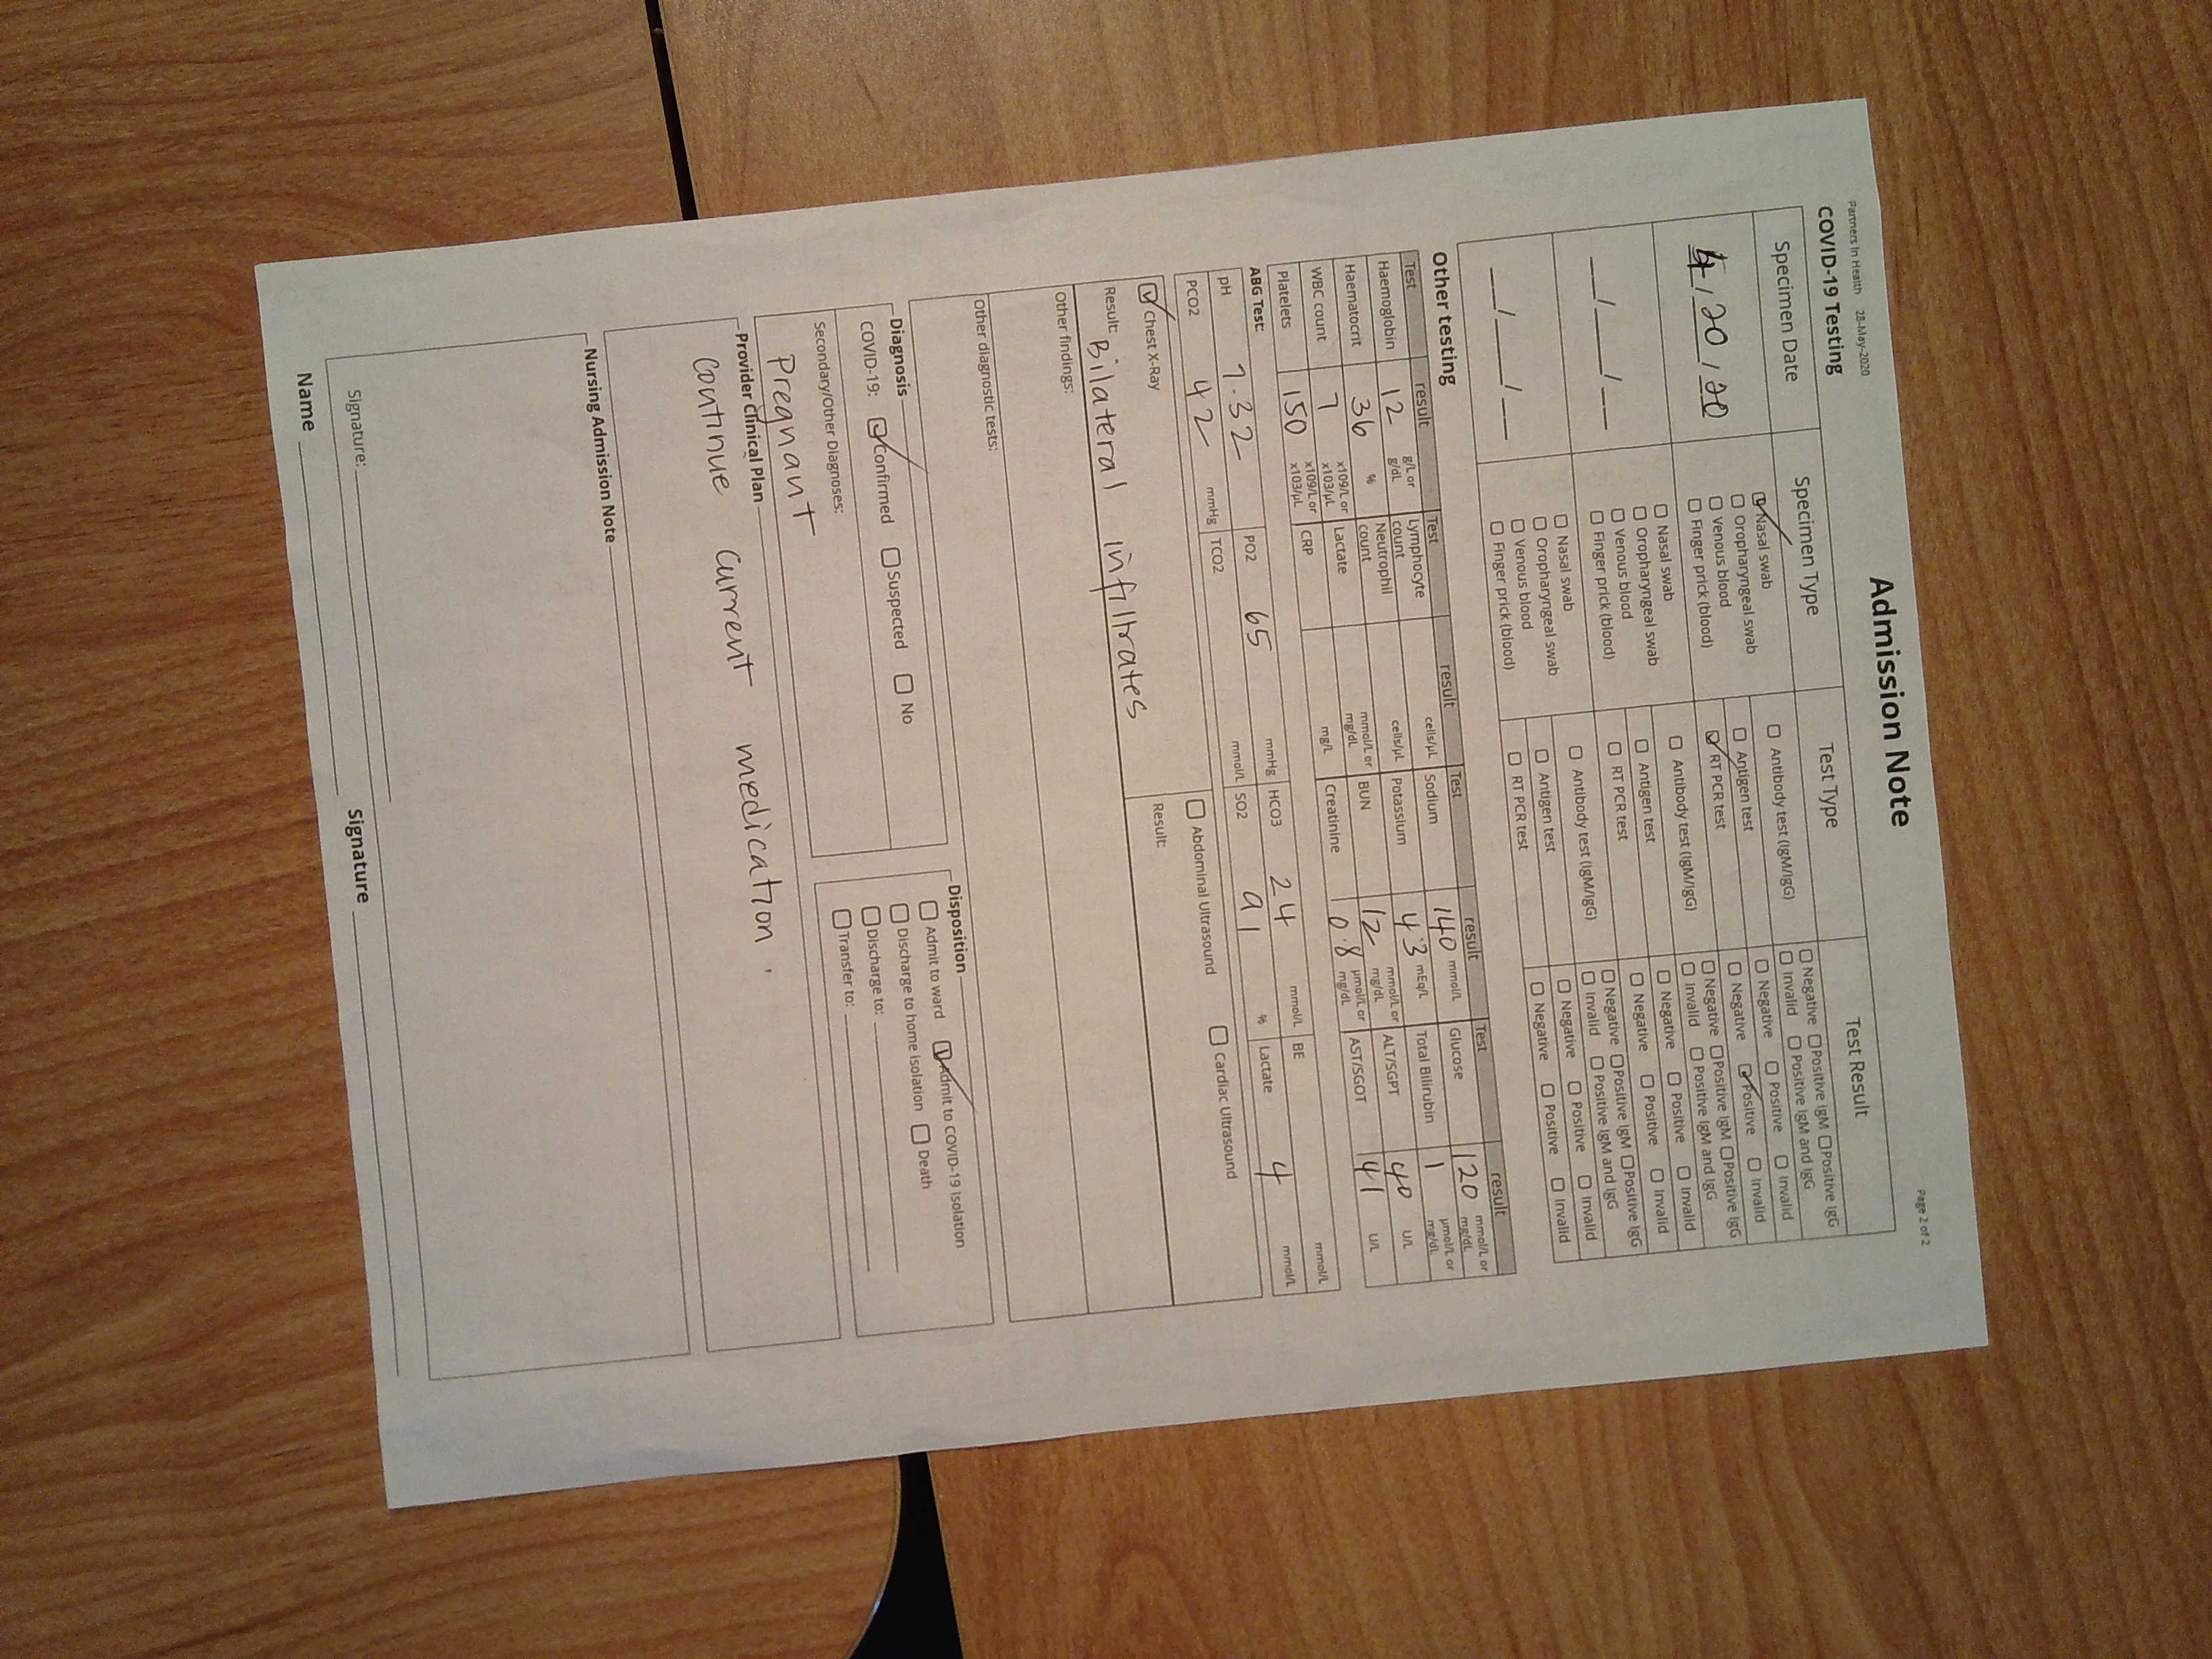 Partners In Health 28-May-2020
Page 2 of 2
Admission Note
COVID-19 Testing
Specimen Date Specimen Type Test Type Test Result
4/20/20
☑ Nasal swab
☐ Oropharyngeal swab
☐ Venous blood
☐ Finger prick (blood)
☐ Antibody test (IgM/IgG)
☐ Negative ☐ Positive IgM ☐ Positive IgG
☐ Invalid ☐ Positive IgM and IgG
☐ Antigen test ☐ Negative ☐ Positive ☐ Invalid
☑ RT PCR test ☐ Negative ☑ Positive ☐ Invalid
__/__/__
☐ Nasal swab
☐ Oropharyngeal swab
☐ Venous blood
☐ Finger prick (blood)
☐ Antibody test (IgM/IgG)
☐ Negative ☐ Positive IgM ☐ Positive IgG
☐ Invalid ☐ Positive IgM and IgG
☐ Antigen test ☐ Negative ☐ Positive ☐ Invalid
☐ RT PCR test ☐ Negative ☐ Positive ☐ Invalid
__/__/__
☐ Nasal swab
☐ Oropharyngeal swab
☐ Venous blood
☐ Finger prick (blood)
☐ Antibody test (IgM/IgG)
☐ Negative ☐ Positive IgM ☐ Positive IgG
☐ Invalid ☐ Positive IgM and IgG
☐ Antigen test ☐ Negative ☐ Positive ☐ Invalid
☐ RT PCR test ☐ Negative ☐ Positive ☐ Invalid
Other testing
Test result Test result Test result Test result
Haemoglobin 12 g/L or g/dL Lymphocyte count cells/µL Sodium 140 mmol/L Glucose 120 mmol/L or mg/dL
Haematocrit 36 % Neutrophil count cells/µL Potassium 4.3 mEq/L Total Bilirubin 1 µmol/L or mg/dL
WBC count 7 x109/L or x103/µL Lactate mmol/L or mg/dL BUN 12 mmol/L or mg/dL ALT/SGPT 40 U/L
Platelets 150 x109/L or x103/µL CRP mg/L Creatinine 0.8 µmol/L or mg/dL AST/SGOT 41 U/L
ABG Test:
pH 7.32 PO2 65 mmHg HCO3 24 mmol/L BE mmol/L
PCO2 42 mmHg TCO2 mmol/L SO2 91 % Lactate 4 mmol/L
☑ Chest X-Ray ☐ Abdominal Ultrasound ☐ Cardiac Ultrasound
Result: Bilateral infiltrates Result:
Other findings:
Other diagnostic tests:
Diagnosis
COVID-19: ☑ Confirmed ☐ Suspected ☐ No
Secondary/Other Diagnoses:
Pregnant
Disposition
☐ Admit to ward ☑ Admit to COVID-19 isolation
☐ Discharge to home isolation ☐ Death
☐ Discharge to:
☐ Transfer to:
Provider Clinical Plan
Continue current medication.
Nursing Admission Note
Signature:
Name Signature